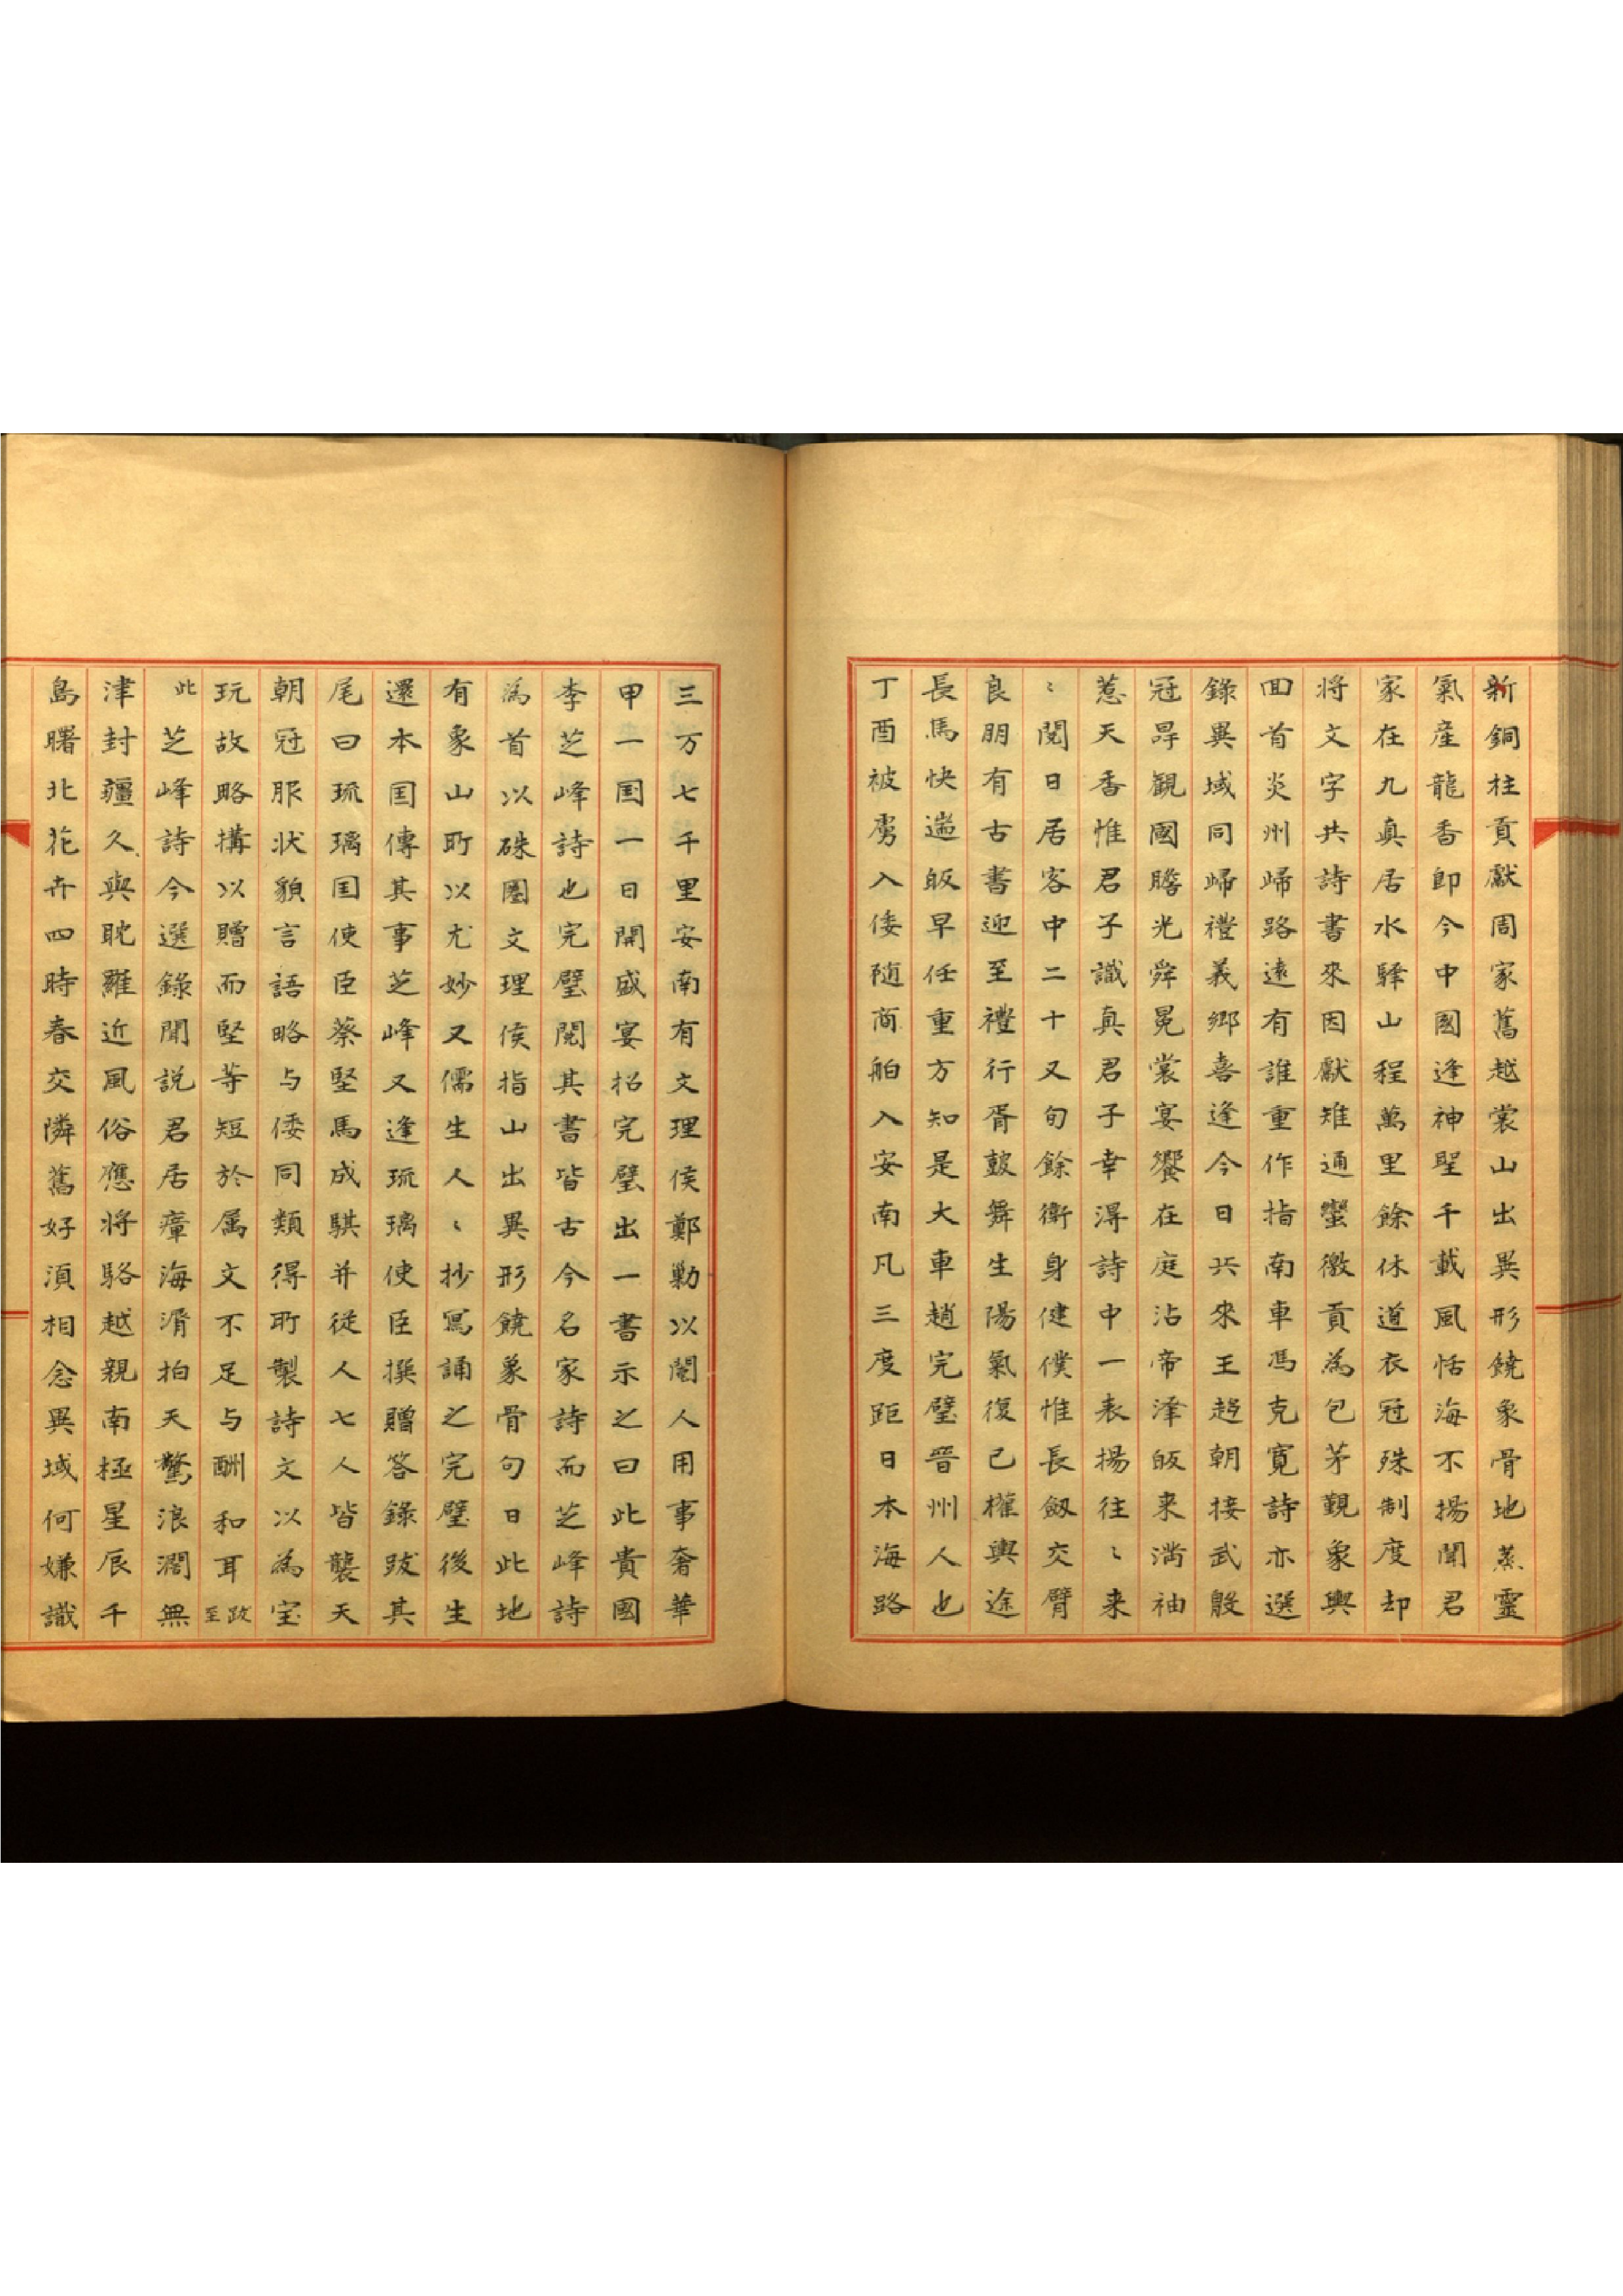 新銅柱貢獻周家舊越裳山出異形饒象骨地蒸靈
氣產龍香即今中國逢神聖千載風恬海不揚聞君
家在九真居水驛山程萬里餘休道衣冠殊制度却
将文字共詩書來因獻雉通蠻徼貢為包茅覲象輿
回首炎州歸路遠有誰重作指南車馮克寬詩亦選
錄異域同歸禮義鄉喜逢今日共來王趍朝接武殷
冠冔觀國瞻光舜冕裳宴饗在庭沾帝泽皈来满袖
惹天香惟君子識真君子幸淂詩中一表揚往〻来
〻閱日居客中二十又旬餘衛身健僕惟長劔交臂
良朋有古書迎至禮行胥鼓舞生陽氣復已權輿途
長馬快遄皈早任重方知是大車趙完璧晉州人也
丁酉被虜入倭随商舶入安南凡三度距日本海路
三万七千里安南有文理侯鄭勦以閹人用事奢華
甲一国一日開盛宴招完璧出一書示之曰此貴國
李芝峰詩也完璧閱其書皆古今名家詩而芝峰詩
為首以硃圈文理侯指山出異形饒象骨句曰此地
有象山所以尤妙又儒生人〻抄寫誦之完璧後生
還本国傳其事芝峰又逢琉璃使臣撰贈答錄跋其
尾曰琉璃国使臣蔡堅馬成騏并從人七人皆襲天
朝冠服状貌言語略与倭同類得所製詩文以為宝
玩故略搆以贈而堅等短於属文不足与酬和耳跋至
此芝峰詩今選錄聞説君居瘴海湄拍天驚浪濶無
津封疆久與耽羅近風俗應将駱越親南極星辰千
島曙北花卉四時春交隣舊好湏相念異域何嫌識